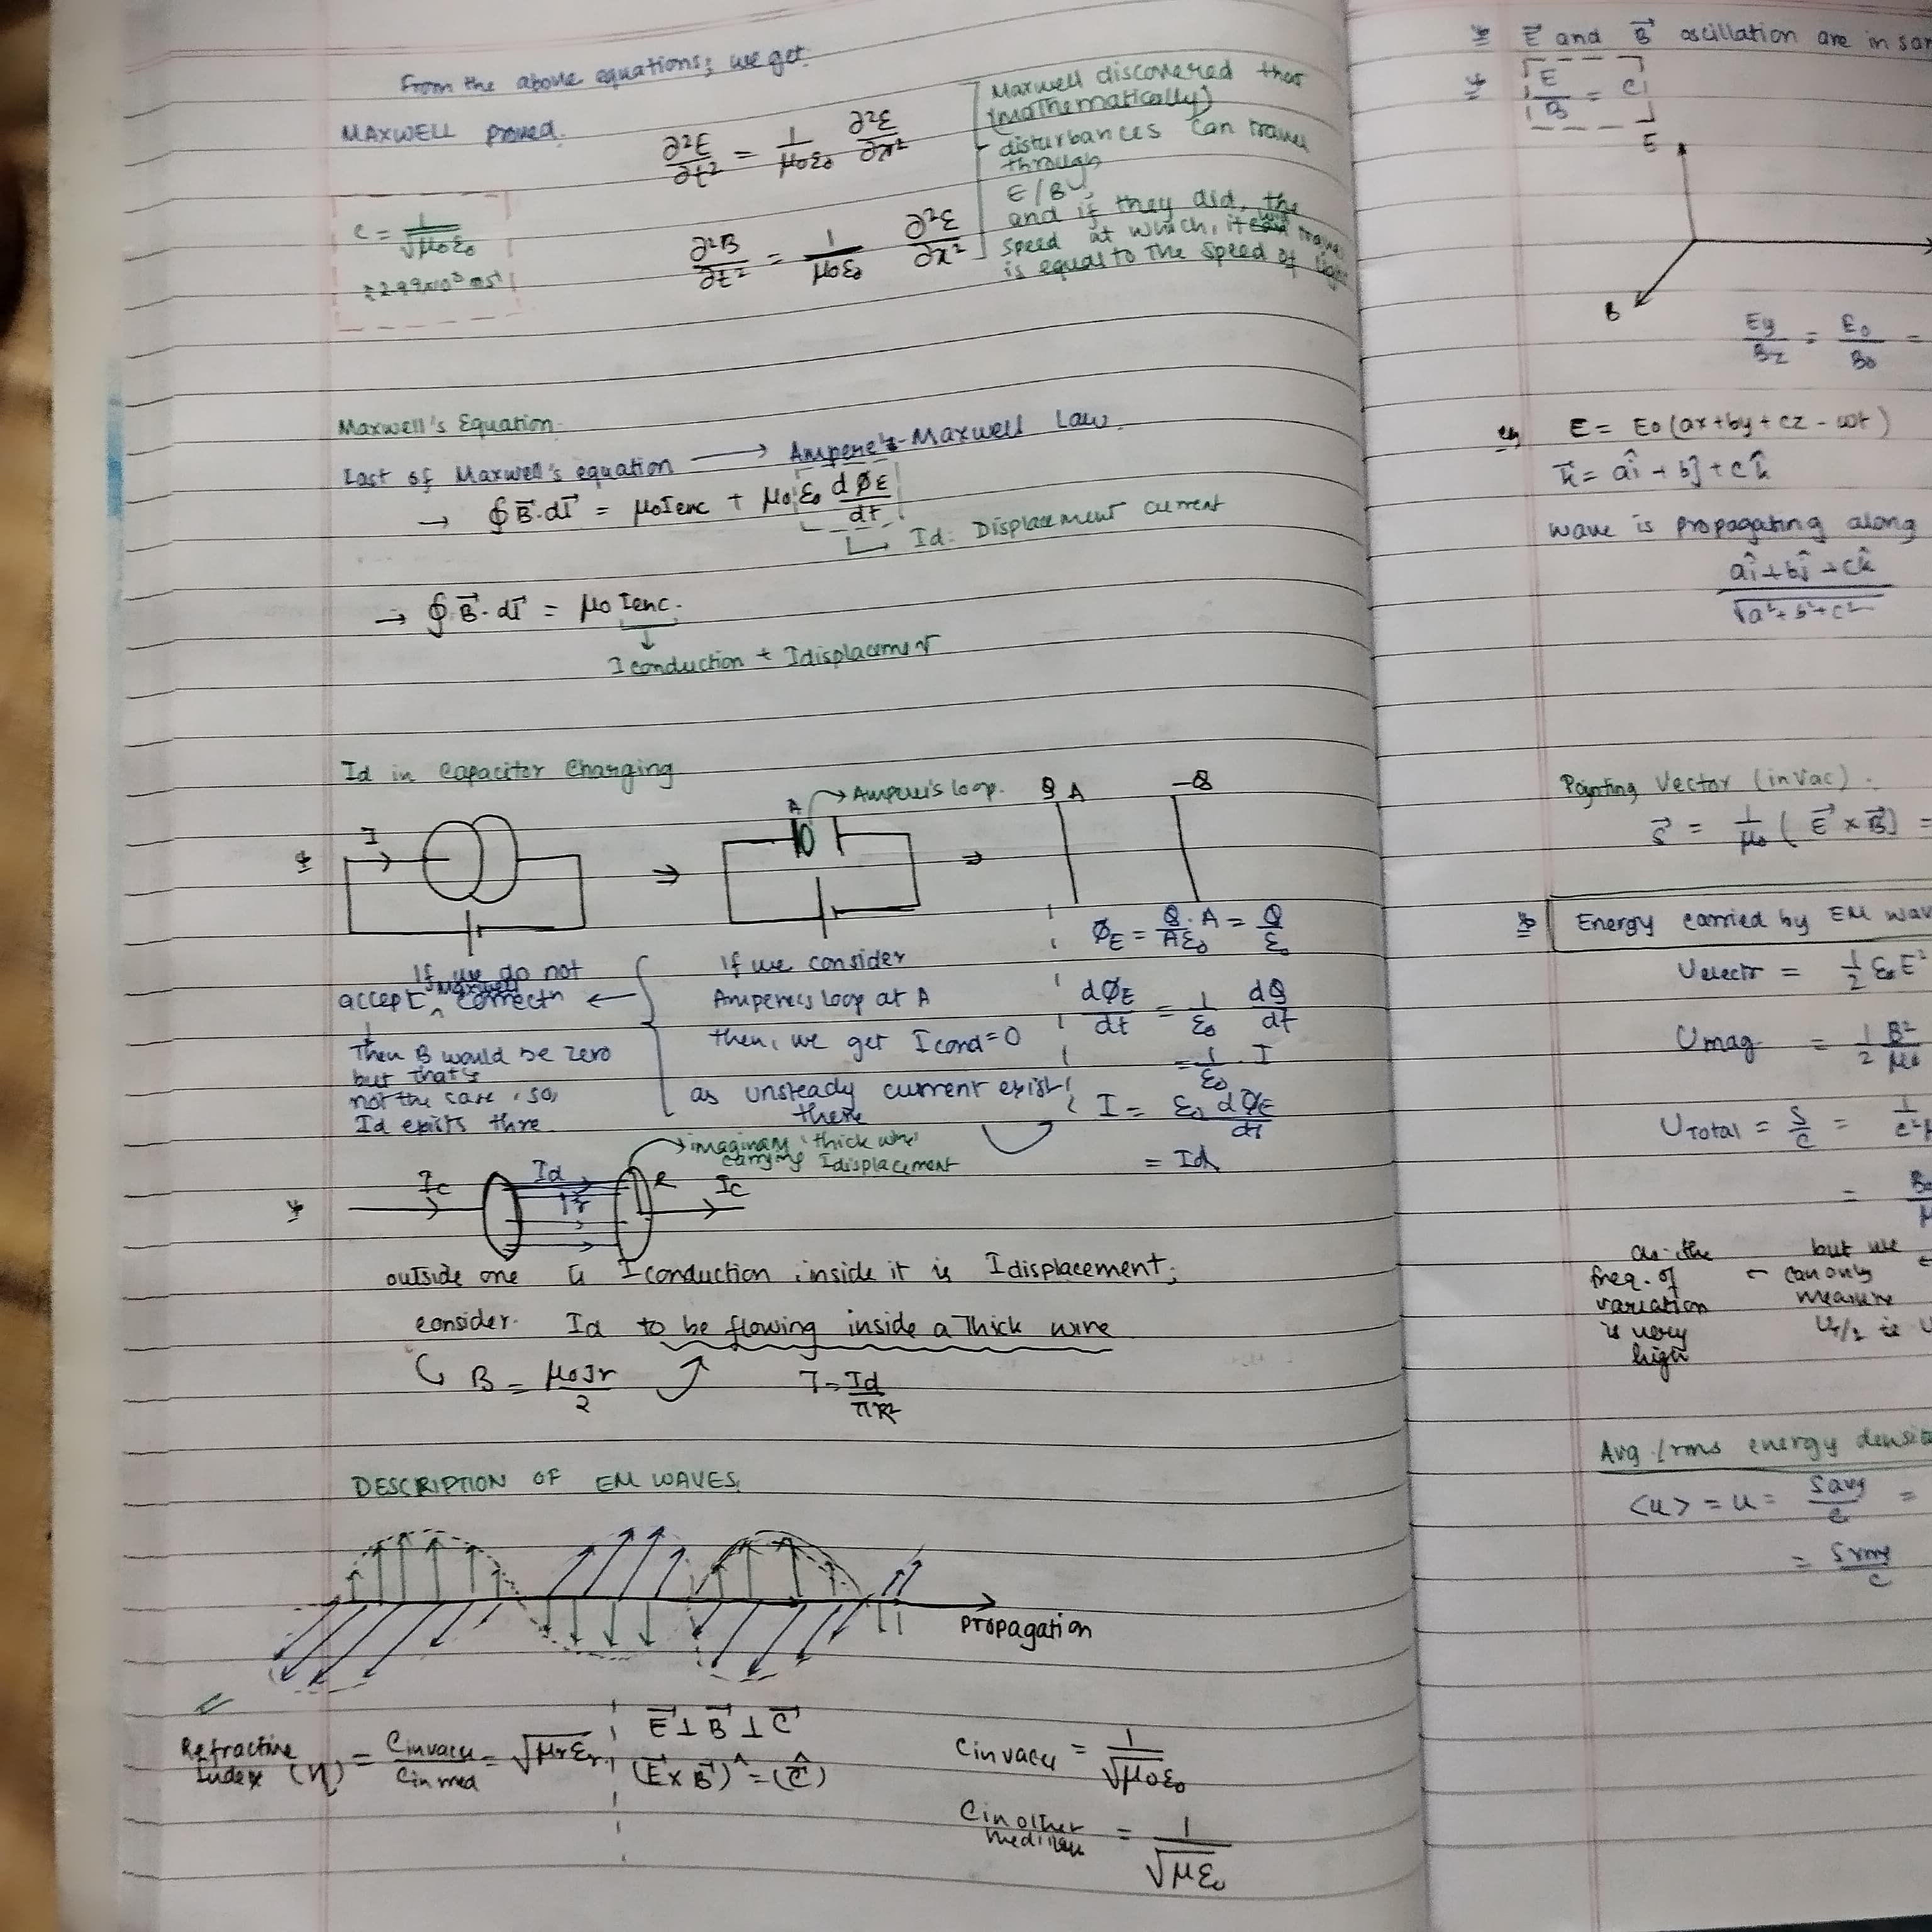 From the above equations; we get.
MAXWELL proved.
∂²E/∂t² = 1/μ₀ε₀ ∂²E/∂x²
∂²B/∂t² = 1/μ₀ε₀ ∂²E/∂x²
c = 1/√μ₀ε₀
Maxwell discovered that
(mathematically)
disturbances can travel
through
E/B,
and if they did, the
speed at which, it will travel
is equal to the speed of light
Maxwell's Equation
Last of Maxwell's equation → Ampere's-Maxwell Law.
→ ∮B⃗.dl⃗ = μ₀Ienc + μ₀ε₀ dØE/dt
Id: Displacement current
→ ∮B⃗.dl⃗ = μ₀ Ienc.
↓
I conduction + Idisplacement
Id in Capacitor Charging
I
⇒
A → Ampere's loop.
⇒
Q A -Q
ØE = Q/Aε₀ . A = Q/ε₀
dØE/dt = 1/ε₀ dQ/dt
= 1/ε₀ . I
I = ε₀ dØE/dt
= Id
If we consider
Ampere's loop at A
then, we get Icond = 0
as unsteady current exist
there
If we do not
accept Maxwell correctn ←
Then B would be zero
but that's
not the case, so,
Id exists thre
→ imaginary 'thick wire'
carrying Idisplacement
Ic Id r R Ic
outside one is Iconduction, inside it is Idisplacement;
consider. Id to be flowing inside a thick wire
B = μ₀Jr/2 J = Id/πR²
DESCRIPTION OF EM WAVES
propagation
Refractive
Index (η) = Cinvacu/Cin med = √μrεr
E⃗ ⊥ B⃗ ⊥ C⃗
(E⃗ × B⃗)^ = (Ĉ)
Cinvacu = 1/√μ₀ε₀
Cin other
medium = 1/√με₀
E⃗ and B⃗ oscillation are in
E/B = C
E
B
Ey/Bz = E₀/B₀ =
eg E = E₀(ax+by+cz - ωt)
k⃗ = aî + bĵ + ck̂
wave is propagating along
aî + bĵ + ck̂/√a²+b²+c²
Poynting Vector (in vac).
S⃗ = 1/μ₀ (E⃗ × B⃗) =
Energy carried by EM
Uelectr = 1/2 ε₀E²
Umag = 1/2 B²/μ₀
UTotal = S/C =
=
as the
freq. of
variation
is very
high
← but we
can only
measure
←
Avg/rms energy
<u> = u = Savg/c =
= Srms/c